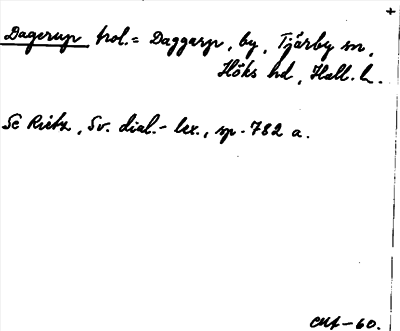 +
Dagerup hol. = Daggarp, by, Tjärby sn,
Höks hd, Hall. l.
Se Rietz, Sv. dial.-lex., sp. 782 a.
CMf-60.